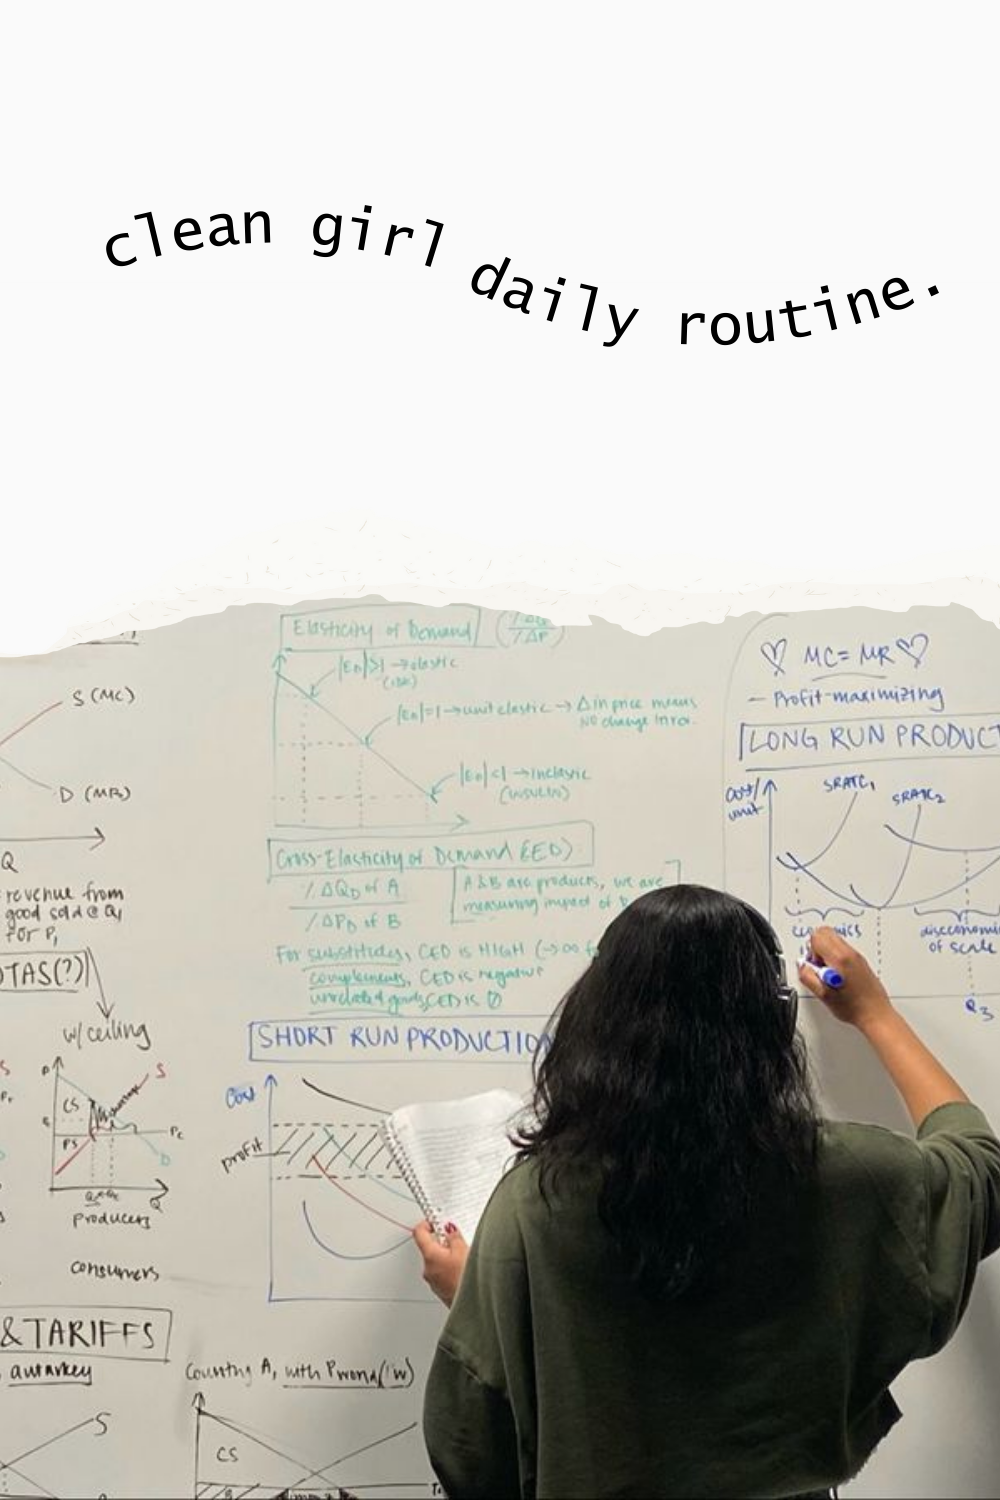 clean girl daily routine.
Elasticity of Demand
|ED|>1 → elastic
|ED|=1 → unit elastic → Δ in price means
no change in rev.
|ED|<1 → inelastic
(insulin)
Cross-Elasticity of Demand (CED)
%ΔQD of A
%ΔPD of B
A & B are products, we are
measuring impact of
For substitutes, CED is HIGH
complements, CED is negative
unrelated goods, CED is 0
SHORT RUN PRODUCTION
Cost
profit
♡ MC = MR ♡
- Profit-maximizing
LONG RUN PRODUCT
cost/
unit
SRATC1
SRATC2
of scale
Q3
S (MC)
D (MR)
Q
revenue from
good sold @ Q1
for P1
OTAS(?)
w/ ceiling
P
S
CS
PS
Pc
D
Q
producers
consumers
& TARIFFS
autarkey
S
Country A, with Pworld
CS